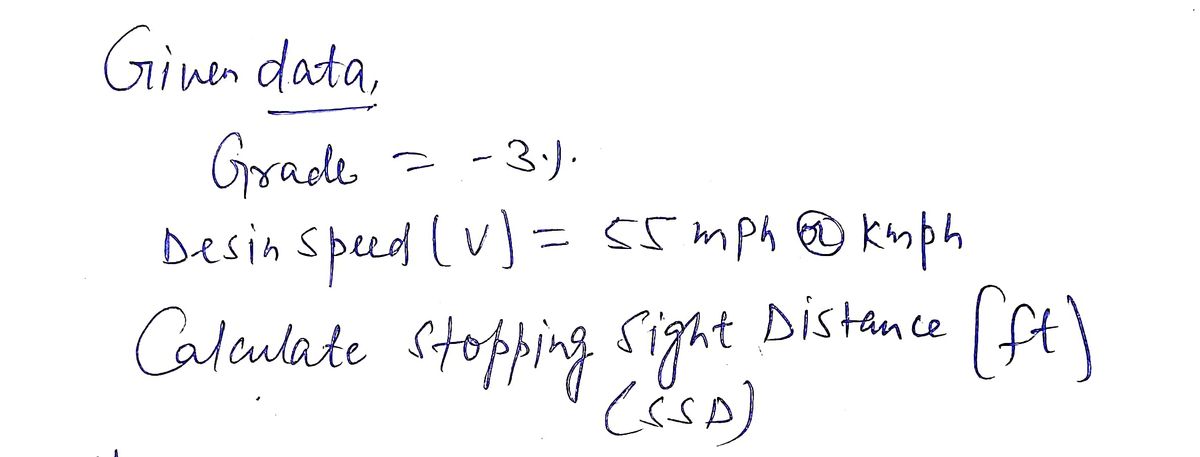 Given data,
Grade = -3%.
Desin speed (V) = 55 mph or kmph
Calculate stopping sight Distance (ft)
(SSD)